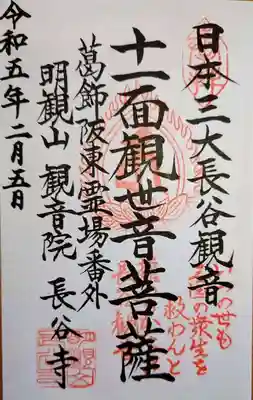 日本三大長谷観音
十一面観世音菩薩
葛飾阪東霊場番外
明観山 観音院 長谷寺
令和五年二月五日
世も
の衆生を
救わんと